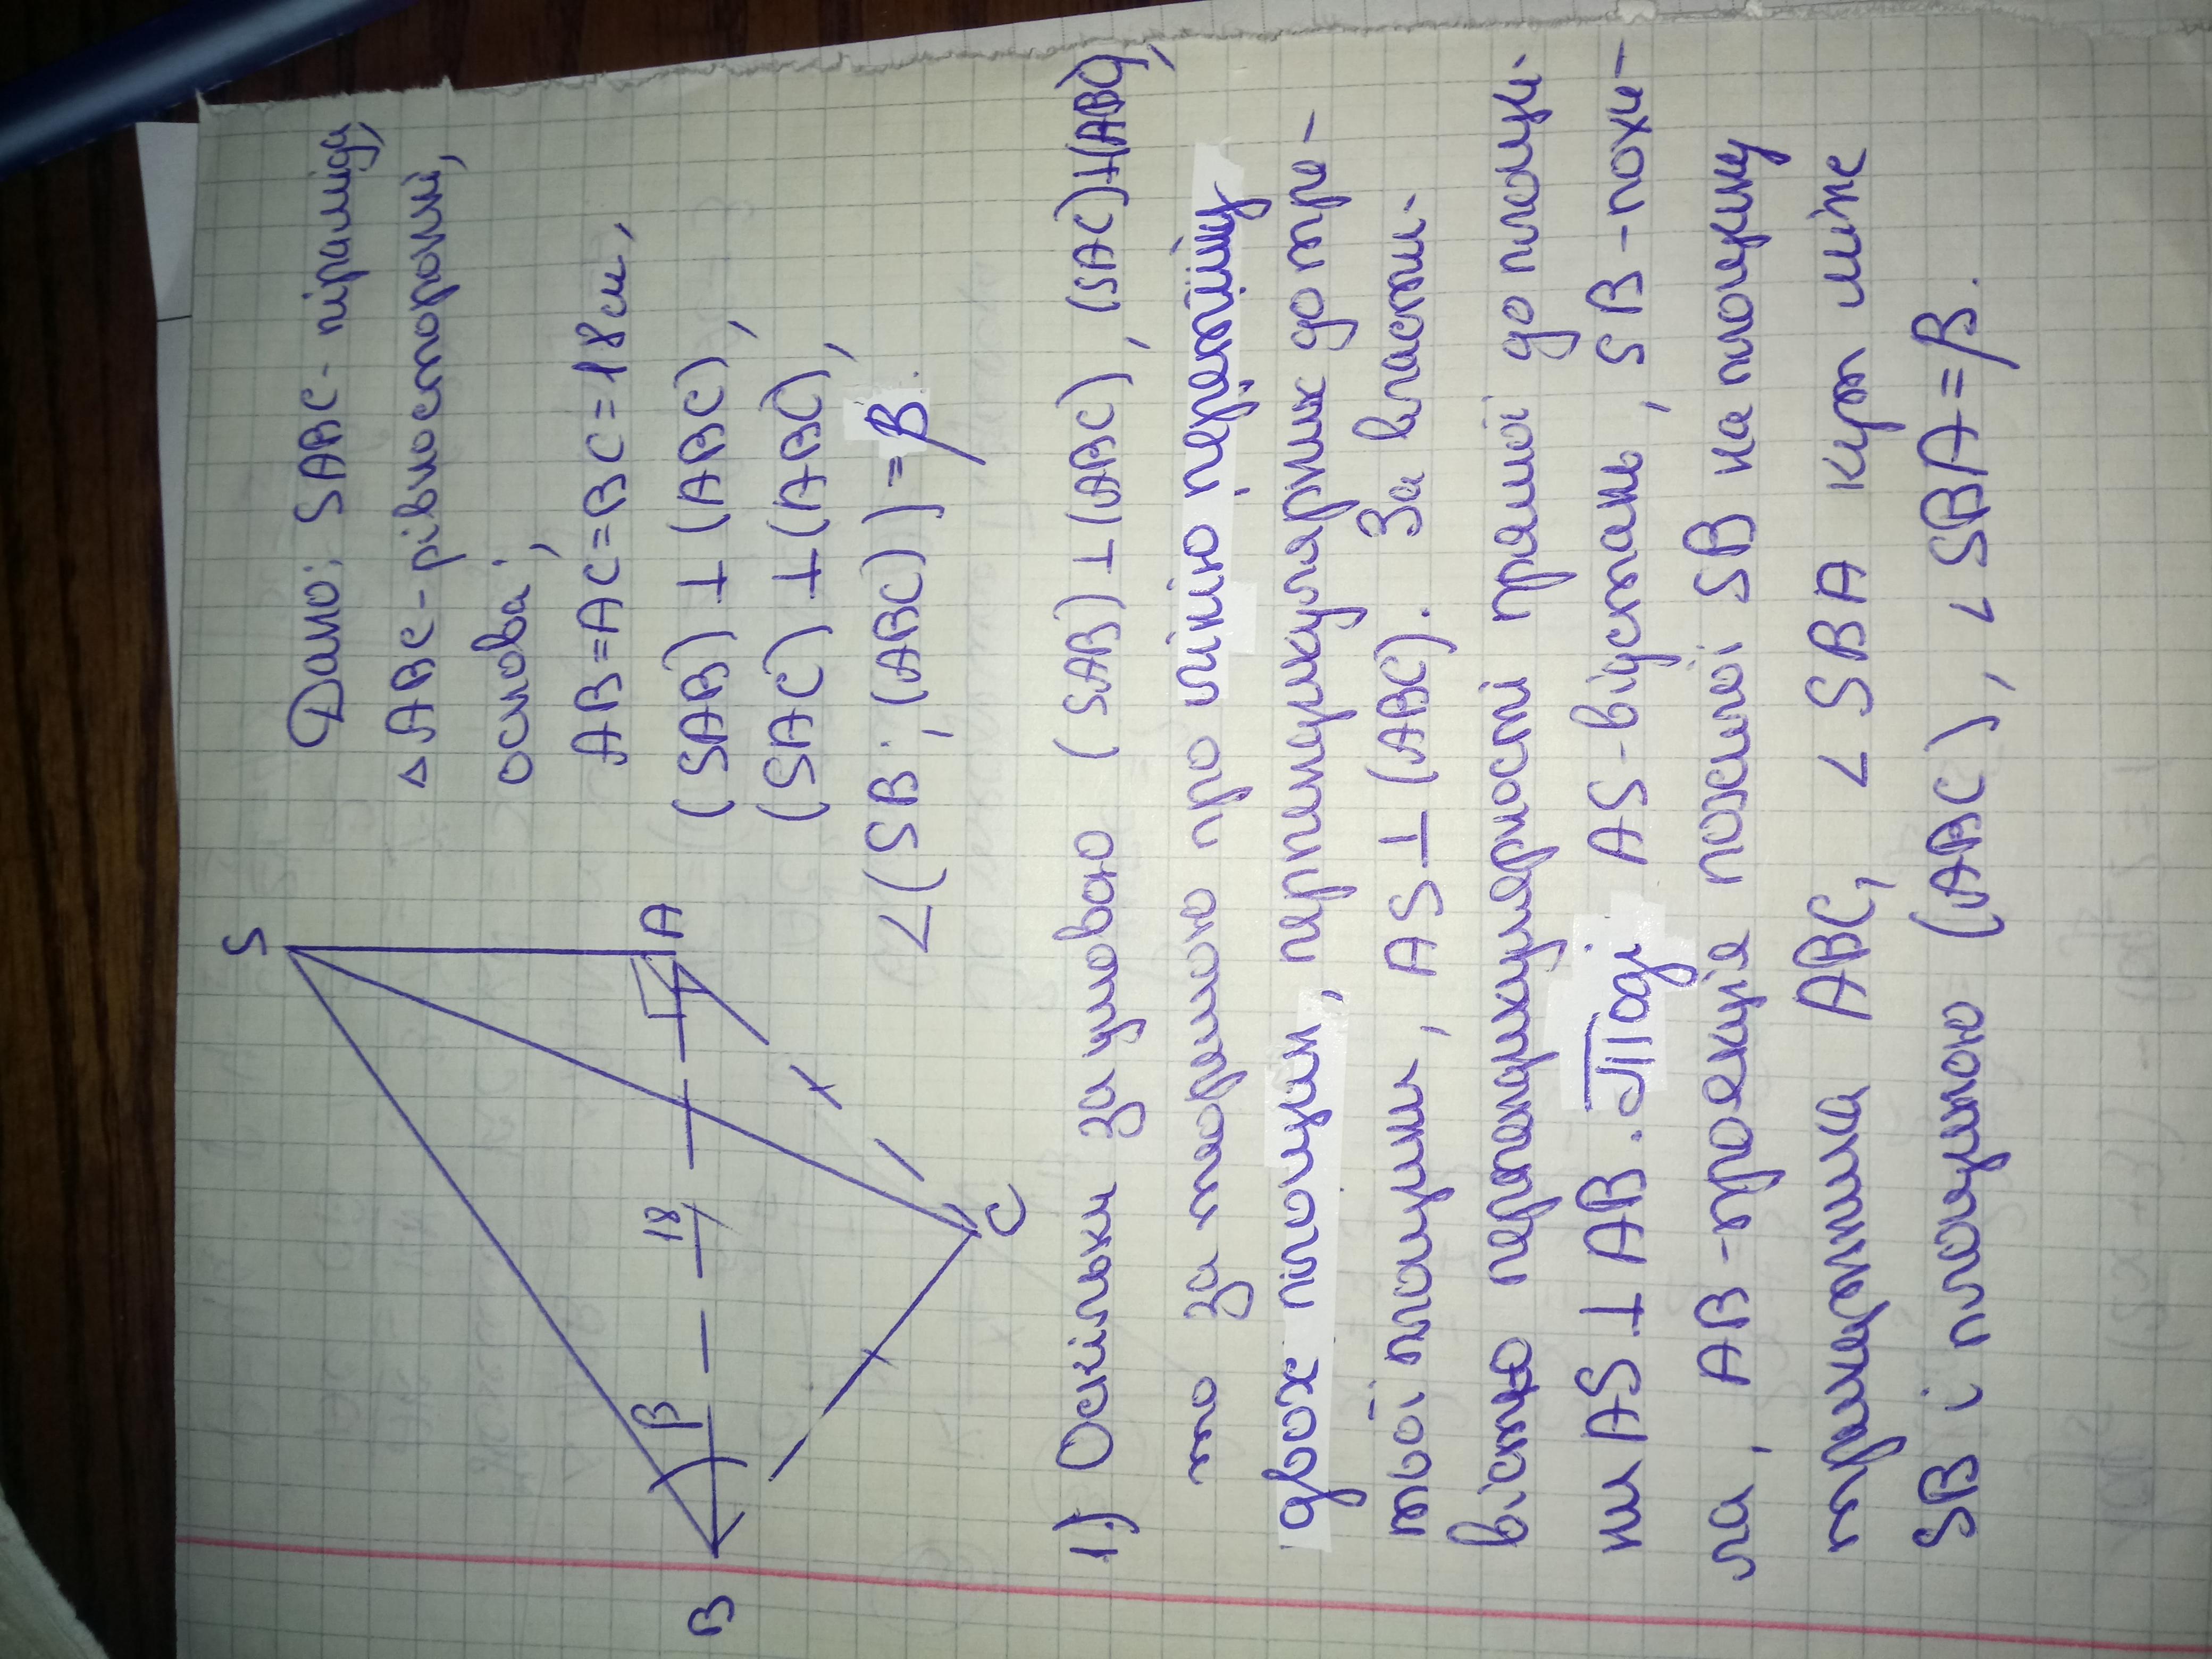 S
A
B
C
β
18
Дано: SABC - піраміда,
△ABC - рівносторонній,
основа;
AB=AC=BC=18см,
(SAB)⊥(ABC),
(SAC)⊥(ABC),
∠(SB;(ABC))=β.
1) Оскільки за умовою (SAB)⊥(ABC), (SAC)⊥(ABC),
то за теоремою про лінію перетину
двох площин, перпендикулярних до тре-
тьої площини, AS⊥(ABC). За власти-
вістю перпендикулярності прямої до площи-
ни AS⊥AB. Тоді AS-відстань, SB-похи-
ла, AB-проекція похилої SB на площину
трикутника ABC, ∠SBA кут між
SB і площиною (ABC), ∠SBA=β.